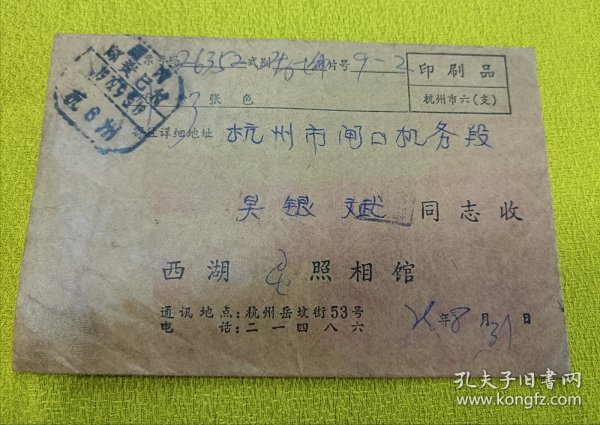 票号码 26352 式别 片号 9-2
印刷品
杭州市六(支)
3 张 色
寄证详细地址 杭州市闸口机务段
吴银斌 同志收
西湖 照相馆
通讯地点:杭州岳坟街53号
电 话:二一四八六
年8月31日
孔夫子旧书网
www.kongfz.com